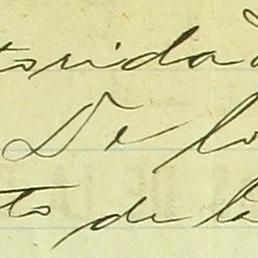 torida
De lo
to de la